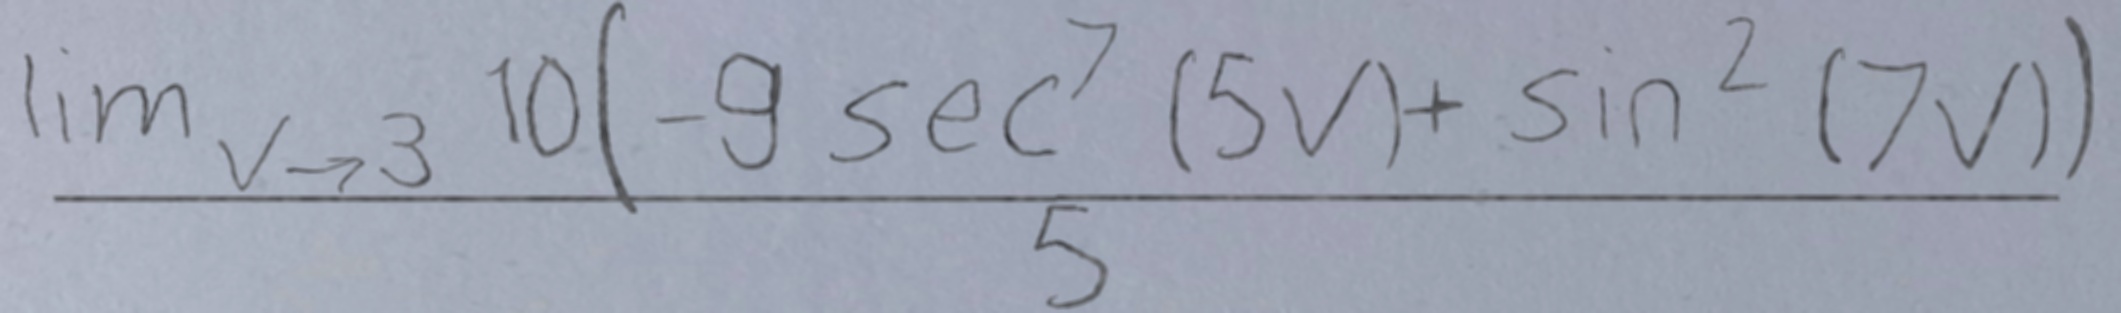 lim v→3 10(-9 sec^7 (5v)+ sin^2 (7v))
5